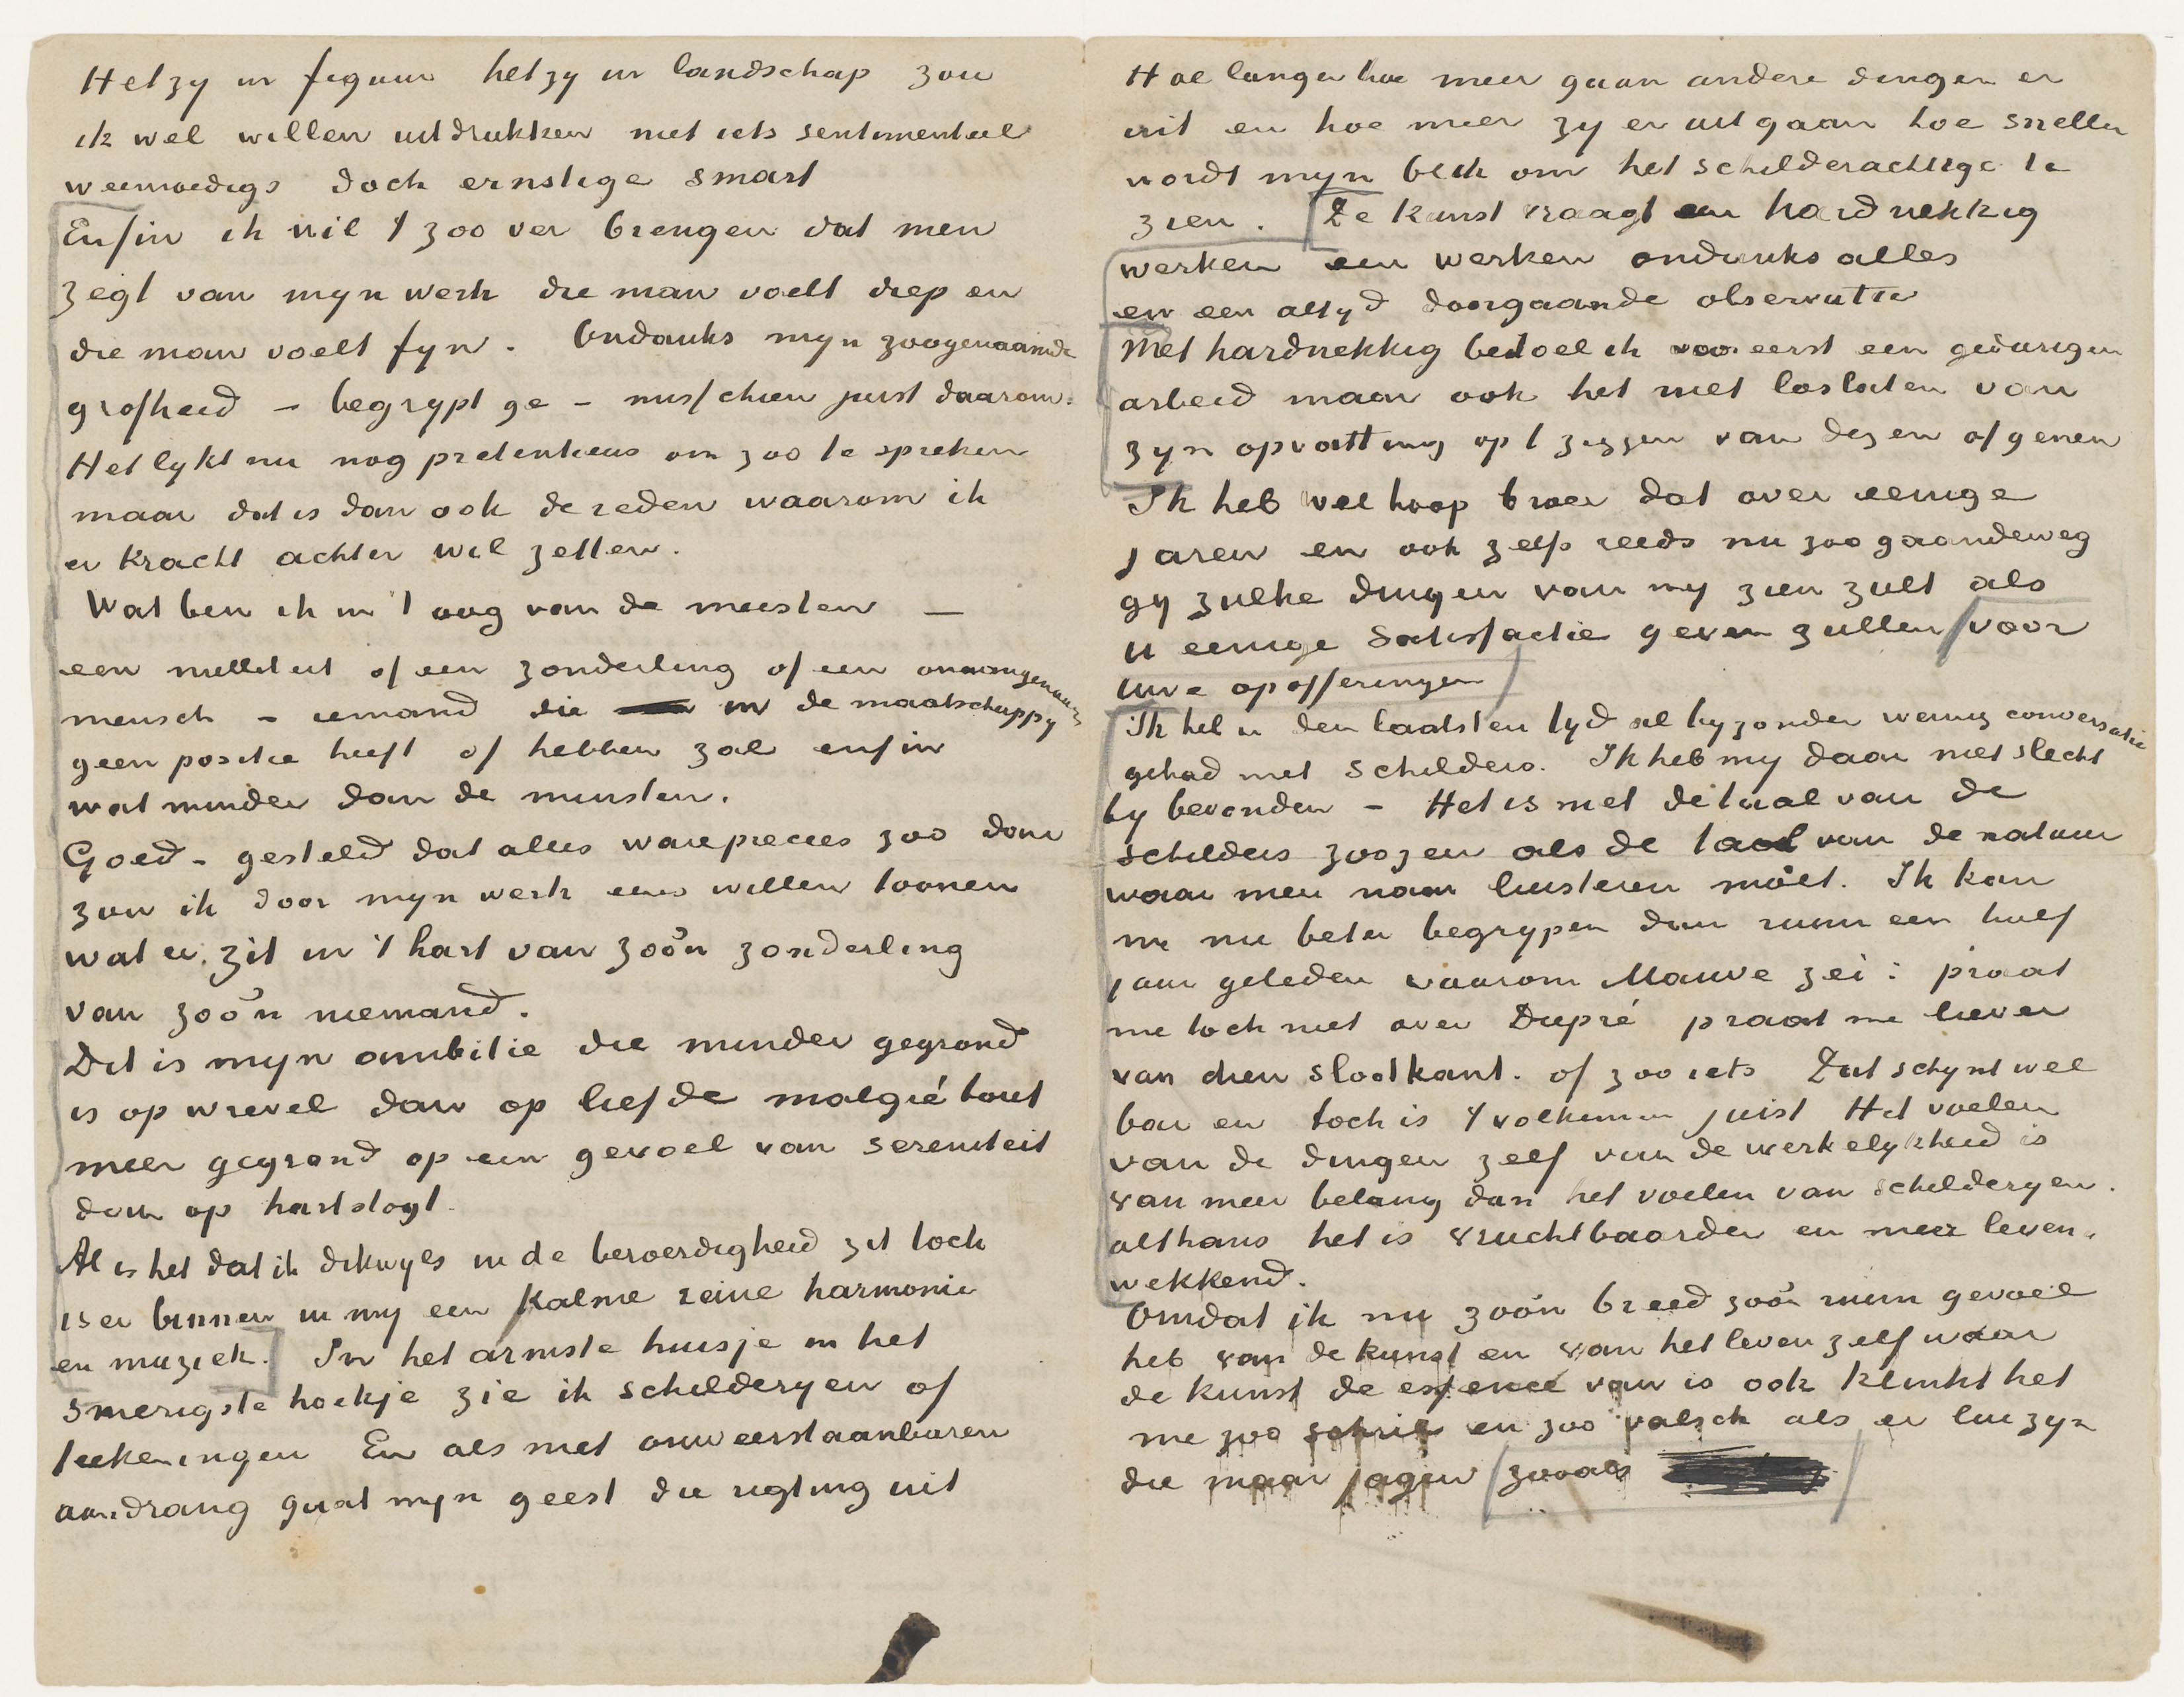 Hetzy in figuur hetzy in landschap zou
ik wel willen uitdrukken niet iets sentimenteel
weemoedigs doch ernstige smart
Enfin ik wil 't zoo ver brengen dat men
zegt van myn werk die man voelt diep en
die man voelt fyn. Ondanks myn zoogenaamde
grofheid – begrypt ge – misschien juist daarom.
Het lykt nu nog pretentieus om zoo te spreken
maar dat is dan ook de reden waarom ik
er kracht achter wil zetten.
Wat ben ik in 't oog van de meesten —
een nulliteit of een zonderling of een onaangenaam
mensch – iemand die in de maatschappy
geen positie heeft of hebben zal enfin
wat minder dan de minsten.
Goed – gesteld dat alles ware precies zoo dan
zou ik door myn werk eens willen toonen
wat er zit in 't hart van zoo'n zonderling
van zoo'n niemand.
Dit is myn ambitie die minder gegrond
is op wrevel dan op liefde malgré tout
meer gegrond op een gevoel van sereniteit
dan op hartstogt.
Al is het dat ik dikwyls in de beroerdigheid zit toch
is er binnen in my een kalme reine harmonie
en muziek. In het armste huisje in het
smerigste hoekje zie ik schilderyen of
teekeningen En als met onweerstaanbaren
aandrang gaat myn geest die rigting uit
Hoe langer hoe meer gaan andere dingen er
uit en hoe meer zy er uit gaan hoe sneller
wordt myn blik om het schilderachtige te
zien. De kunst vraagt een hardnekkig
werken een werken ondanks alles
en een altyd doorgaande observatie
Met hardnekkig bedoel ik vooreerst een gedurigen
arbeid maar ook het niet loslaten van
zyn opvatting op 't zeggen van dezen of genen
Ik heb wel hoop broer dat over eenige
jaren en ook zelfs reeds nu zoo gaandeweg
gy zulke dingen van my zien zult als
u eenige satisfactie geven zullen voor
uwe opofferingen
Ik heb in den laatsten tyd al byzonder weinig conversatie
gehad met schilders. Ik heb my daar niet slecht
by bevonden – Het is niet de taal van de
schilders zoozeer als de taal van de natuur
waar men naar luisteren moet. Ik kan
me nu beter begrypen dan ruim een half
jaar geleden waarom Mauve zei: praat
me toch niet over Dupré praat me liever
van dien slootkant. of zoo iets Dat schynt wel
bar en toch is 't volkomen juist Het voelen
van de dingen zelf van de werkelykheid is
van meer belang dan het voelen van schilderyen.
althans het is vruchtbaarder en meer leven.
wekkend.
Omdat ik nu zoo'n breed zoo'n ruim gevoel
heb van de kunst en van het leven zelf waar
de kunst de essence van is ook klinkt het
me zoo schril en zoo valsch als er lui zyn
die maar jagen zooals